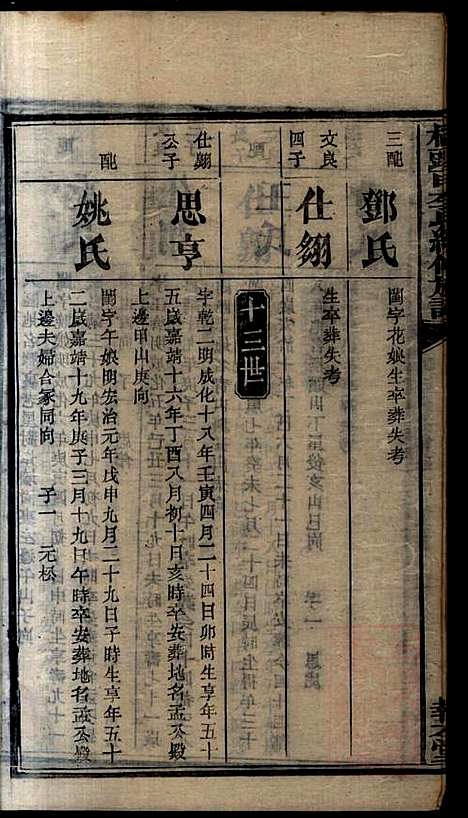 三配
鄧氏
閨字花娘生卒葬失考
文良四子
仕翎
生卒葬失考
十三世
仕翎公子
思亨
字乾二明成化十八年壬寅四月二十四日卯時生享年五十
五歲嘉靖十六年丁酉八月初十日亥時卒安葬地名孟公殿
上邊甲山庚向
配
姚氏
閨字午娘明宏治元年戊申九月二十九日子時生享年五十
二歲嘉靖十九年庚子三月十九日午時卒安葬地名孟公殿
上邊夫婦合冢同向 子一 元松